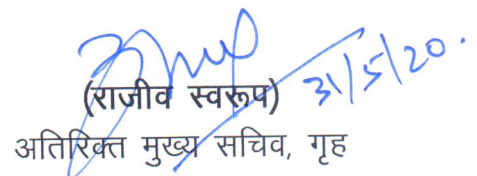 31/5/20.
(राजीव स्वरूप)
अतिरिक्त मुख्य सचिव, गृह